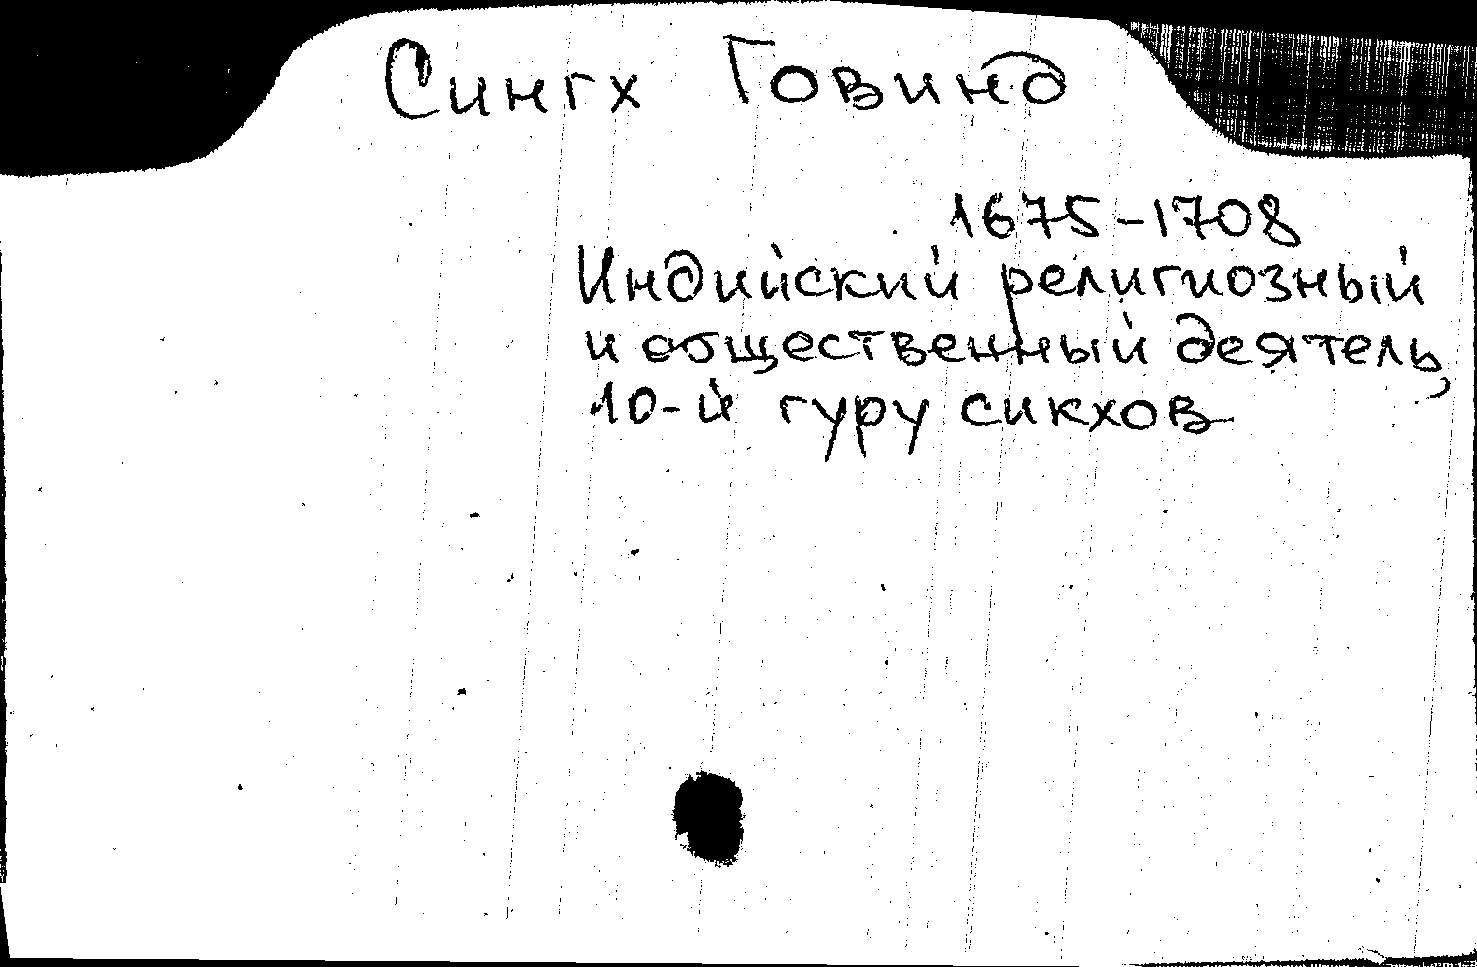 Сингх Говинд
1675-1708
Индийский религиозный
и общественный деятель,
10-й гуру сикхов